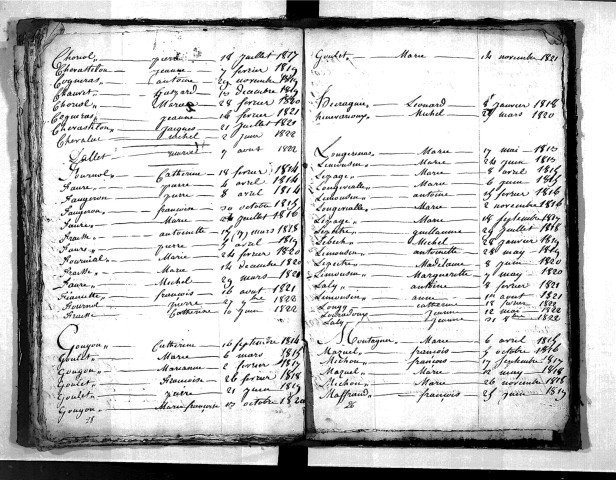 Choriol pierre 18 juillet 1817
Chevastelon jeanne 7 février 1819
Cogneras antoine 29 novembre 1819
Chauvet gaspard 10 décembre 1819
Choriol Marie 28 février 1820
Cogneras jeanne 16 février 1821
Chevastelon jacques 21 juillet 1821
Chevalier Michel 2 juin 1822
Dallet 7 aout 1822
Fournol Catherine 18 février 1814
Faure pierre 4 avril 1814
Faugeron pierre 8 avril 1814
Faugeron françoise 20 octobre 1815
Faure Marie 24 juillet 1816
Fraisse antoinette 15 (7) mars 1818
Faure pierre 9 avril 1819
Fournial Marie 24 février 1820
Fraisse Marie 14 décembre 1820
Faure Michel 23 mars 1821
françois 16 aout 1821
Fournol Pierre 27 7bre 1822
Fraisse Catherine 10 juin 1822
Gougon Catherine 16 septembre 1814
Goulet Marie 6 mars 1815
Gougon Marianne 2 février 1817
Goulet françoise 26 février 1818
Goulet pierre 21 juin 1819
Gougon Marie françoise 17 octobre 1820
25
Goulet Marie 14 novembre 1821
Léonard 8 janvier 1818
Michel 29 mars 1820
Marie 17 mai 1813
Limousin Marie 24 juin 1813
Lepage Marie 8 avril 1815
Longevialle Marie 6 juin 1815
Limousin antoine 25 février 1816
Longevialle Marie 2 novembre 1816
Lepage Marie 18 septembre 1817
guillaume 29 juillet 1818
Lebech Michel 28 janvier 1819
Limousin antoinette 28 may 1819
Madelaine 8 juin 1820
Limousin Marguerette 7 may 1820
Laly antoine 8 février 1821
Limousin anne 10 aout 1821
Longy catherine 18 février 1822
jeanne 12 mai 1822
Laly jeanne 21 8bre 1822
Montagner Marie 6 avril 1815
Mazuel françois 9 octobre 1816
Michon françois 17 septembre 1817
Mazuel Marie 12 may 1818
Michon Marie 26 novembre 1818
Maffraud françois 25 juin 1819
26